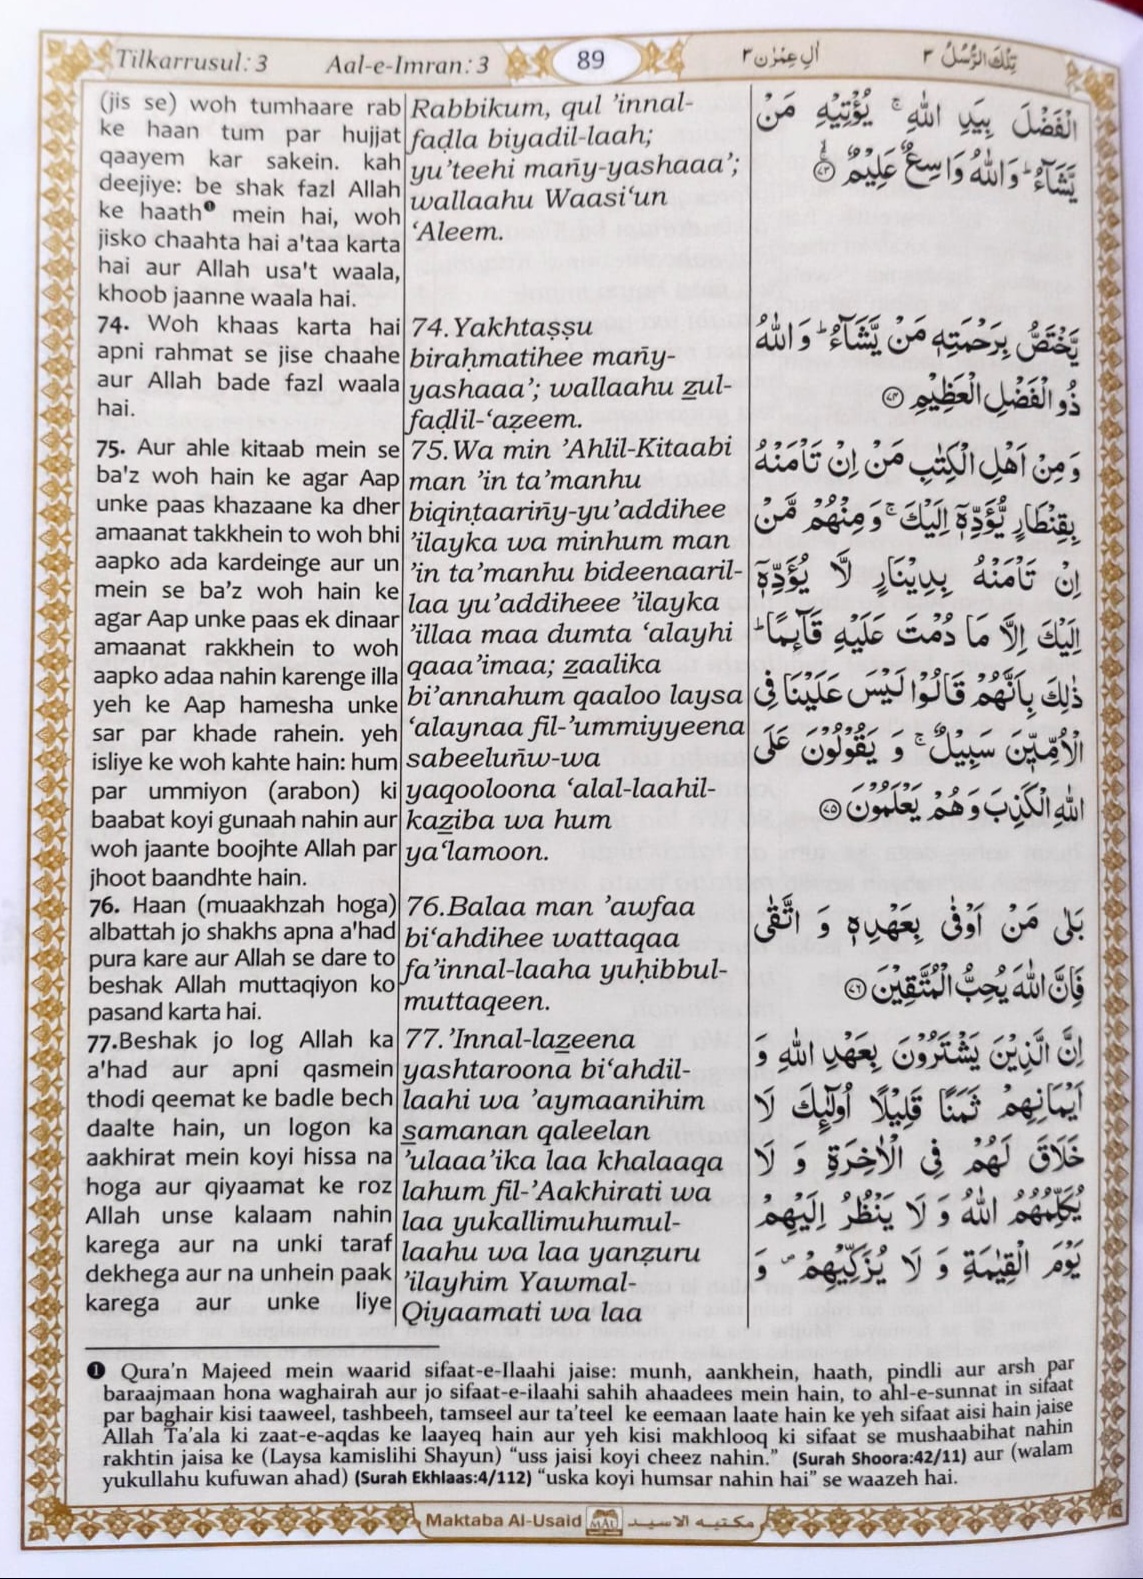 Tilkarrusul: 3 Aal-e-Imran: 3 89 اٰلِ عِمْرٰن ٣ تِلْكَ الرُّسُلُ ٣
(jis se) woh tumhaare rab
ke haan tum par hujjat
qaayem kar sakein. kah
deejiye: be shak fazl Allah
ke haath❶ mein hai, woh
jisko chaahta hai a'taa karta
hai aur Allah usa't waala,
khoob jaanne waala hai.
74. Woh khaas karta hai
apni rahmat se jise chaahe
aur Allah bade fazl waala
hai.
75. Aur ahle kitaab mein se
ba'z woh hain ke agar Aap
unke paas khazaane ka dher
amaanat takkhein to woh bhi
aapko ada kardeinge aur un
mein se ba'z woh hain ke
agar Aap unke paas ek dinaar
amaanat rakkhein to woh
aapko adaa nahin karenge illa
yeh ke Aap hamesha unke
sar par khade rahein. yeh
isliye ke woh kahte hain: hum
par ummiyon (arabon) ki
baabat koyi gunaah nahin aur
woh jaante boojhte Allah par
jhoot baandhte hain.
76. Haan (muaakhzah hoga)
albattah jo shakhs apna a'had
pura kare aur Allah se dare to
beshak Allah muttaqiyon ko
pasand karta hai.
77.Beshak jo log Allah ka
a'had aur apni qasmein
thodi qeemat ke badle bech
daalte hain, un logon ka
aakhirat mein koyi hissa na
hoga aur qiyaamat ke roz
Allah unse kalaam nahin
karega aur na unki taraf
dekhega aur na unhein paak
karega aur unke liye
Rabbikum, qul ’innal-
faḍla biyadil-laah;
yu’teehi mañy-yashaaa’;
wallaahu Waasi‘un
‘Aleem.
74. Yakhtaṣṣu
biraḥmatihee mañy-
yashaaa’; wallaahu z̲ul-
faḍlil-‘aẓeem.
75. Wa min ’Ahlil-Kitaabi
man ’in ta’manhu
biqinṭaariñy-yu’addihee
’ilayka wa minhum man
’in ta’manhu bideenaaril-
laa yu’addiheee ’ilayka
’illaa maa dumta ‘alayhi
qaaa’imaa; z̲aalika
bi’annahum qaaloo laysa
‘alaynaa fil-’ummiyyeena
sabeeluñw-wa
yaqooloona ‘alal-laahil-
kaz̲iba wa hum
ya‘lamoon.
76.Balaa man ’awfaa
bi‘ahdihee wattaqaa
fa’innal-laaha yuḥibbul-
muttaqeen.
77.’Innal-laz̲eena
yashtaroona bi‘ahdil-
laahi wa ’aymaanihim
s̲amanan qaleelan
’ulaaa’ika laa khalaaqa
lahum fil-’Aakhirati wa
laa yukallimuhumul-
laahu wa laa yanẓuru
’ilayhim Yawmal-
Qiyaamati wa laa
الْفَضْلَ بِيَدِ اللّٰهِ ۚ يُؤْتِيْهِ مَنْ
يَّشَآءُ ؕ وَ اللّٰهُ وَاسِعٌ عَلِيْمٌ ﴿٧٣﴾
يَّخْتَصُّ بِرَحْمَتِهٖ مَنْ يَّشَآءُ ؕ وَ اللّٰهُ
ذُو الْفَضْلِ الْعَظِيْمِ ﴿٧٤﴾
وَ مِنْ اَهْلِ الْكِتٰبِ مَنْ اِنْ تَاْمَنْهُ
بِقِنْطَارٍ يُّؤَدِّهٖۤ اِلَيْكَ ۚ وَ مِنْهُمْ مَّنْ
اِنْ تَاْمَنْهُ بِدِيْنَارٍ لَّا يُؤَدِّهٖۤ
اِلَيْكَ اِلَّا مَا دُمْتَ عَلَيْهِ قَآىِٕمًا ؕ
ذٰلِكَ بِاَنَّهُمْ قَالُوْا لَيْسَ عَلَيْنَا فِى
الْاُمِّيّٖنَ سَبِيْلٌ ۚ وَ يَقُوْلُوْنَ عَلَى
اللّٰهِ الْكَذِبَ وَ هُمْ يَعْلَمُوْنَ ﴿٧٥﴾
بَلٰى مَنْ اَوْفٰى بِعَهْدِهٖ وَ اتَّقٰى
فَاِنَّ اللّٰهَ يُحِبُّ الْمُتَّقِيْنَ ﴿٧٦﴾
اِنَّ الَّذِيْنَ يَشْتَرُوْنَ بِعَهْدِ اللّٰهِ وَ
اَيْمَانِهِمْ ثَمَنًا قَلِيْلًا اُولٰٓىِٕكَ لَا
خَلَاقَ لَهُمْ فِى الْاٰخِرَةِ وَ لَا
يُكَلِّمُهُمُ اللّٰهُ وَ لَا يَنْظُرُ اِلَيْهِمْ
يَوْمَ الْقِيٰمَةِ وَ لَا يُزَكِّيْهِمْ ۪ وَ
❶ Qura’n Majeed mein waarid sifaat-e-Ilaahi jaise: munh, aankhein, haath, pindli aur arsh par
baraajmaan hona waghairah aur jo sifaat-e-ilaahi sahih ahaadees mein hain, to ahl-e-sunnat in sifaat
par baghair kisi taaweel, tashbeeh, tamseel aur ta’teel ke eemaan laate hain ke yeh sifaat aisi hain jaise
Allah Ta’ala ki zaat-e-aqdas ke laayeq hain aur yeh kisi makhlooq ki sifaat se mushaabihat nahin
rakhtin jaisa ke (Laysa kamislihi Shayun) “uss jaisi koyi cheez nahin.” (Surah Shoora:42/11) aur (walam
yukullahu kufuwan ahad) (Surah Ekhlaas:4/112) “uska koyi humsar nahin hai” se waazeh hai.
Maktaba Al-Usaid MAU مكتبه الاسيد